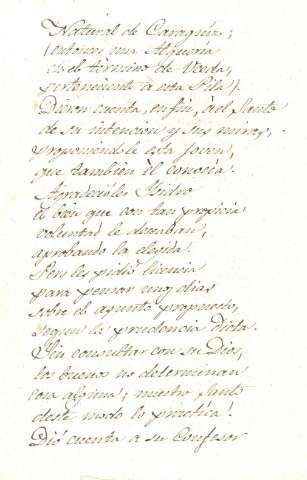 Natural de Caraquiz;
(entonces una Alquería
en el término de Uceda,
perteneciente à esta Pila).
Dieron cuenta, en fin, àel Santo
de su intencion y sus miras,
proponiendole esta joven,
que tambien èl conocia.
Agradeciòles Isidro
el bien que con tan propicia
voluntad le deseaban,
aprobando la elegida.
Pero les pidiò licencia
para pensar muy dias
sobre el asunto propuesto,
segun la prudencia dicta.
Sin consultar con su Dios,
los buenos no determinan
cosa alguna; nuestro Santo
deste modo lo práctica!
Diò cuenta a su Confesor